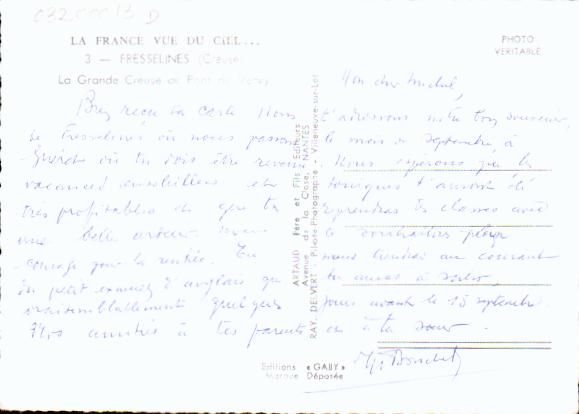 032 00013 D
LA FRANCE VUE DU CIEL...
3 — FRESSELINES (Creuse)
La Grande Creuse au Pont de
PHOTO
VERITABLE
Mon cher Michel,
Bien reçu ta carte. Nous t'adressons notre bon souvenir,
de Fresselines où nous passons le mois de Septembre, à
Guéret où tu dois être revenu. Nous espérons que les
vacances ensoleillées et toniques t'auront été
très profitables et que tu reprendras tes classes avec
une belle ardeur. Nous te souhaitons plein
courage pour la rentrée. Tu nous tiendras au courant
du petit examen d'anglais que tu auras à subir,
vraisemblablement quelques jours avant le 15 septembre.
Nos amitiés à tes parents et à ta sœur.
ARTAUD Père et Fils Editeurs
Avenue de la Close, NANTES
RAY. DELVERT - Pilote-Photographe - Villeneuve-sur-Lot
Editions « GABY »
Marque Déposée